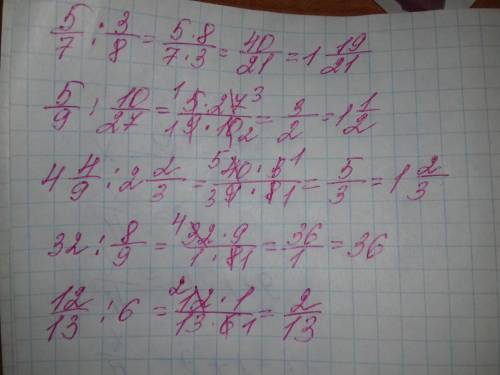 5/7 : 3/8 = 5·8/7·3 = 40/21 = 1 19/21
5/9 : 10/27 = 1 5·27 3/1 9·10 2 = 3/2 = 1 1/2
4 4/9 : 2 2/3 = 5 40·3 1/3 9·8 1 = 5/3 = 1 2/3
32 : 8/9 = 4 32·9/1·8 1 = 36/1 = 36
12/13 : 6 = 2 12·1/13·6 1 = 2/13